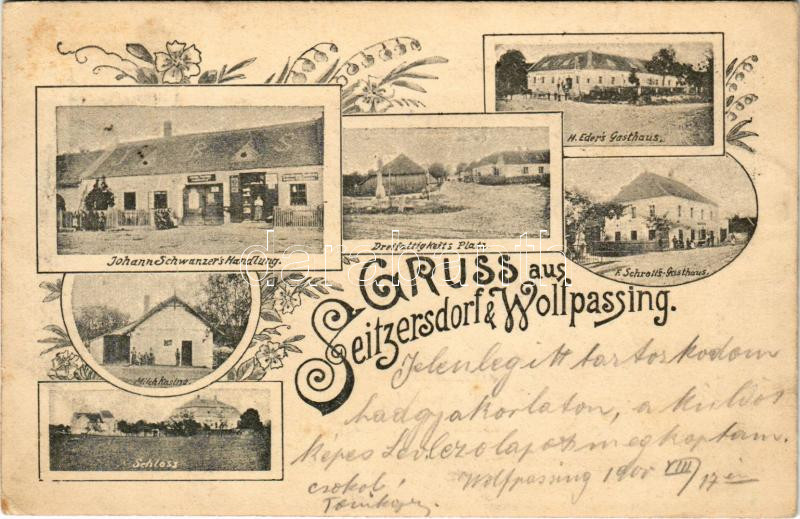 H. Eder's Gasthaus.
Johann Schwanzer's Handlung.
Dreifaltigkeits Platz.
F. Schrott's Gasthaus.
Gruss aus
Seitzersdorf & Wolfpassing.
Milch Kasino.
Schloss
darabanth.com
Jelenleg itt tartozkodom
hadgyakorlaton, a küldöt
képes Levlezőlapot megkaptam.
csokol Wolfpassing 1900 VIII/17 én